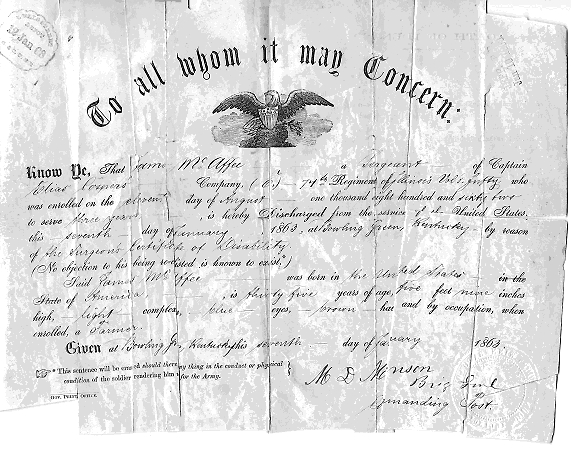 To all whom it may Concern:
Know Ye, That James Mc Affee a Sergeant of Captain
Elias Company, (E,) 74th Regiment of Illinois Vols. Infty who
was enrolled on the eleventh day of August one thousand eight hundred and sixty two
to serve three years is hereby Discharged from the service of the United States,
this seventh day of January 1863, at Bowling Green, Kentucky by reason
of the Surgeons Certificate of Disability.
(No objection to his being is known to exist.)
Said James Mc Affee was born in the United States in the
State of America, is thirty five years of age, five feet nine inches
high, light complex, blue eyes, brown and by occupation, when
enrolled, a Farmer.
Given at Bowling Gr. Kentucky this seventh day of January 1863.
This sentence will be should there thing in the conduct or physical
condition of the soldier rendering him for the Army.
M D Manson
Brig Genl
Post.